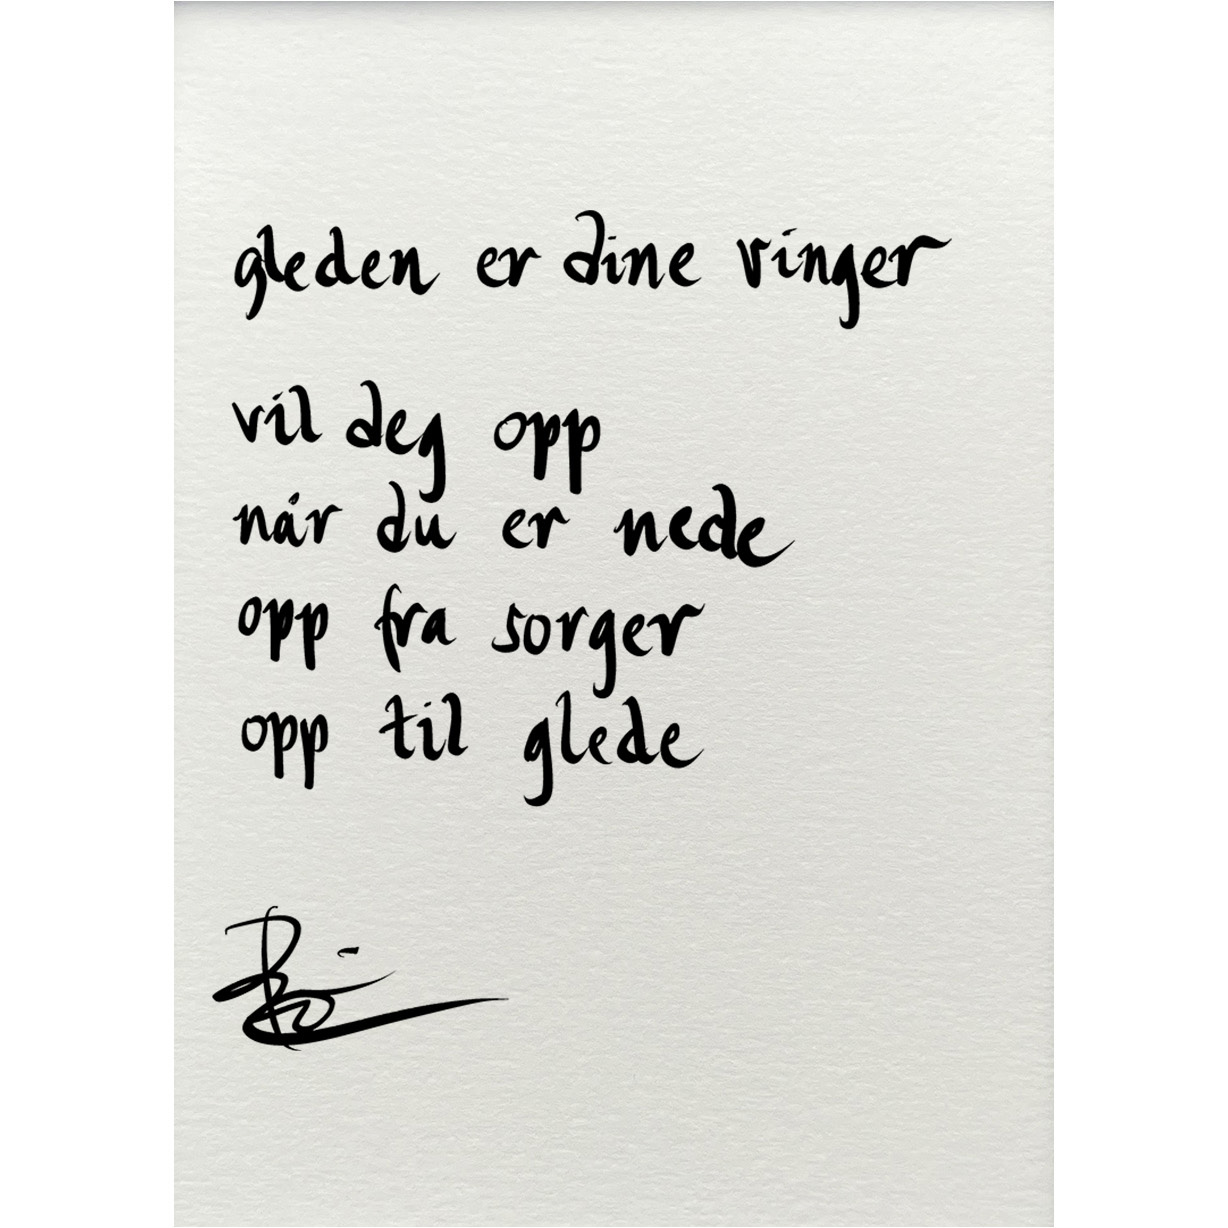 gleden er dine vinger
vil deg opp
når du er nede
opp fra sorger
opp til glede